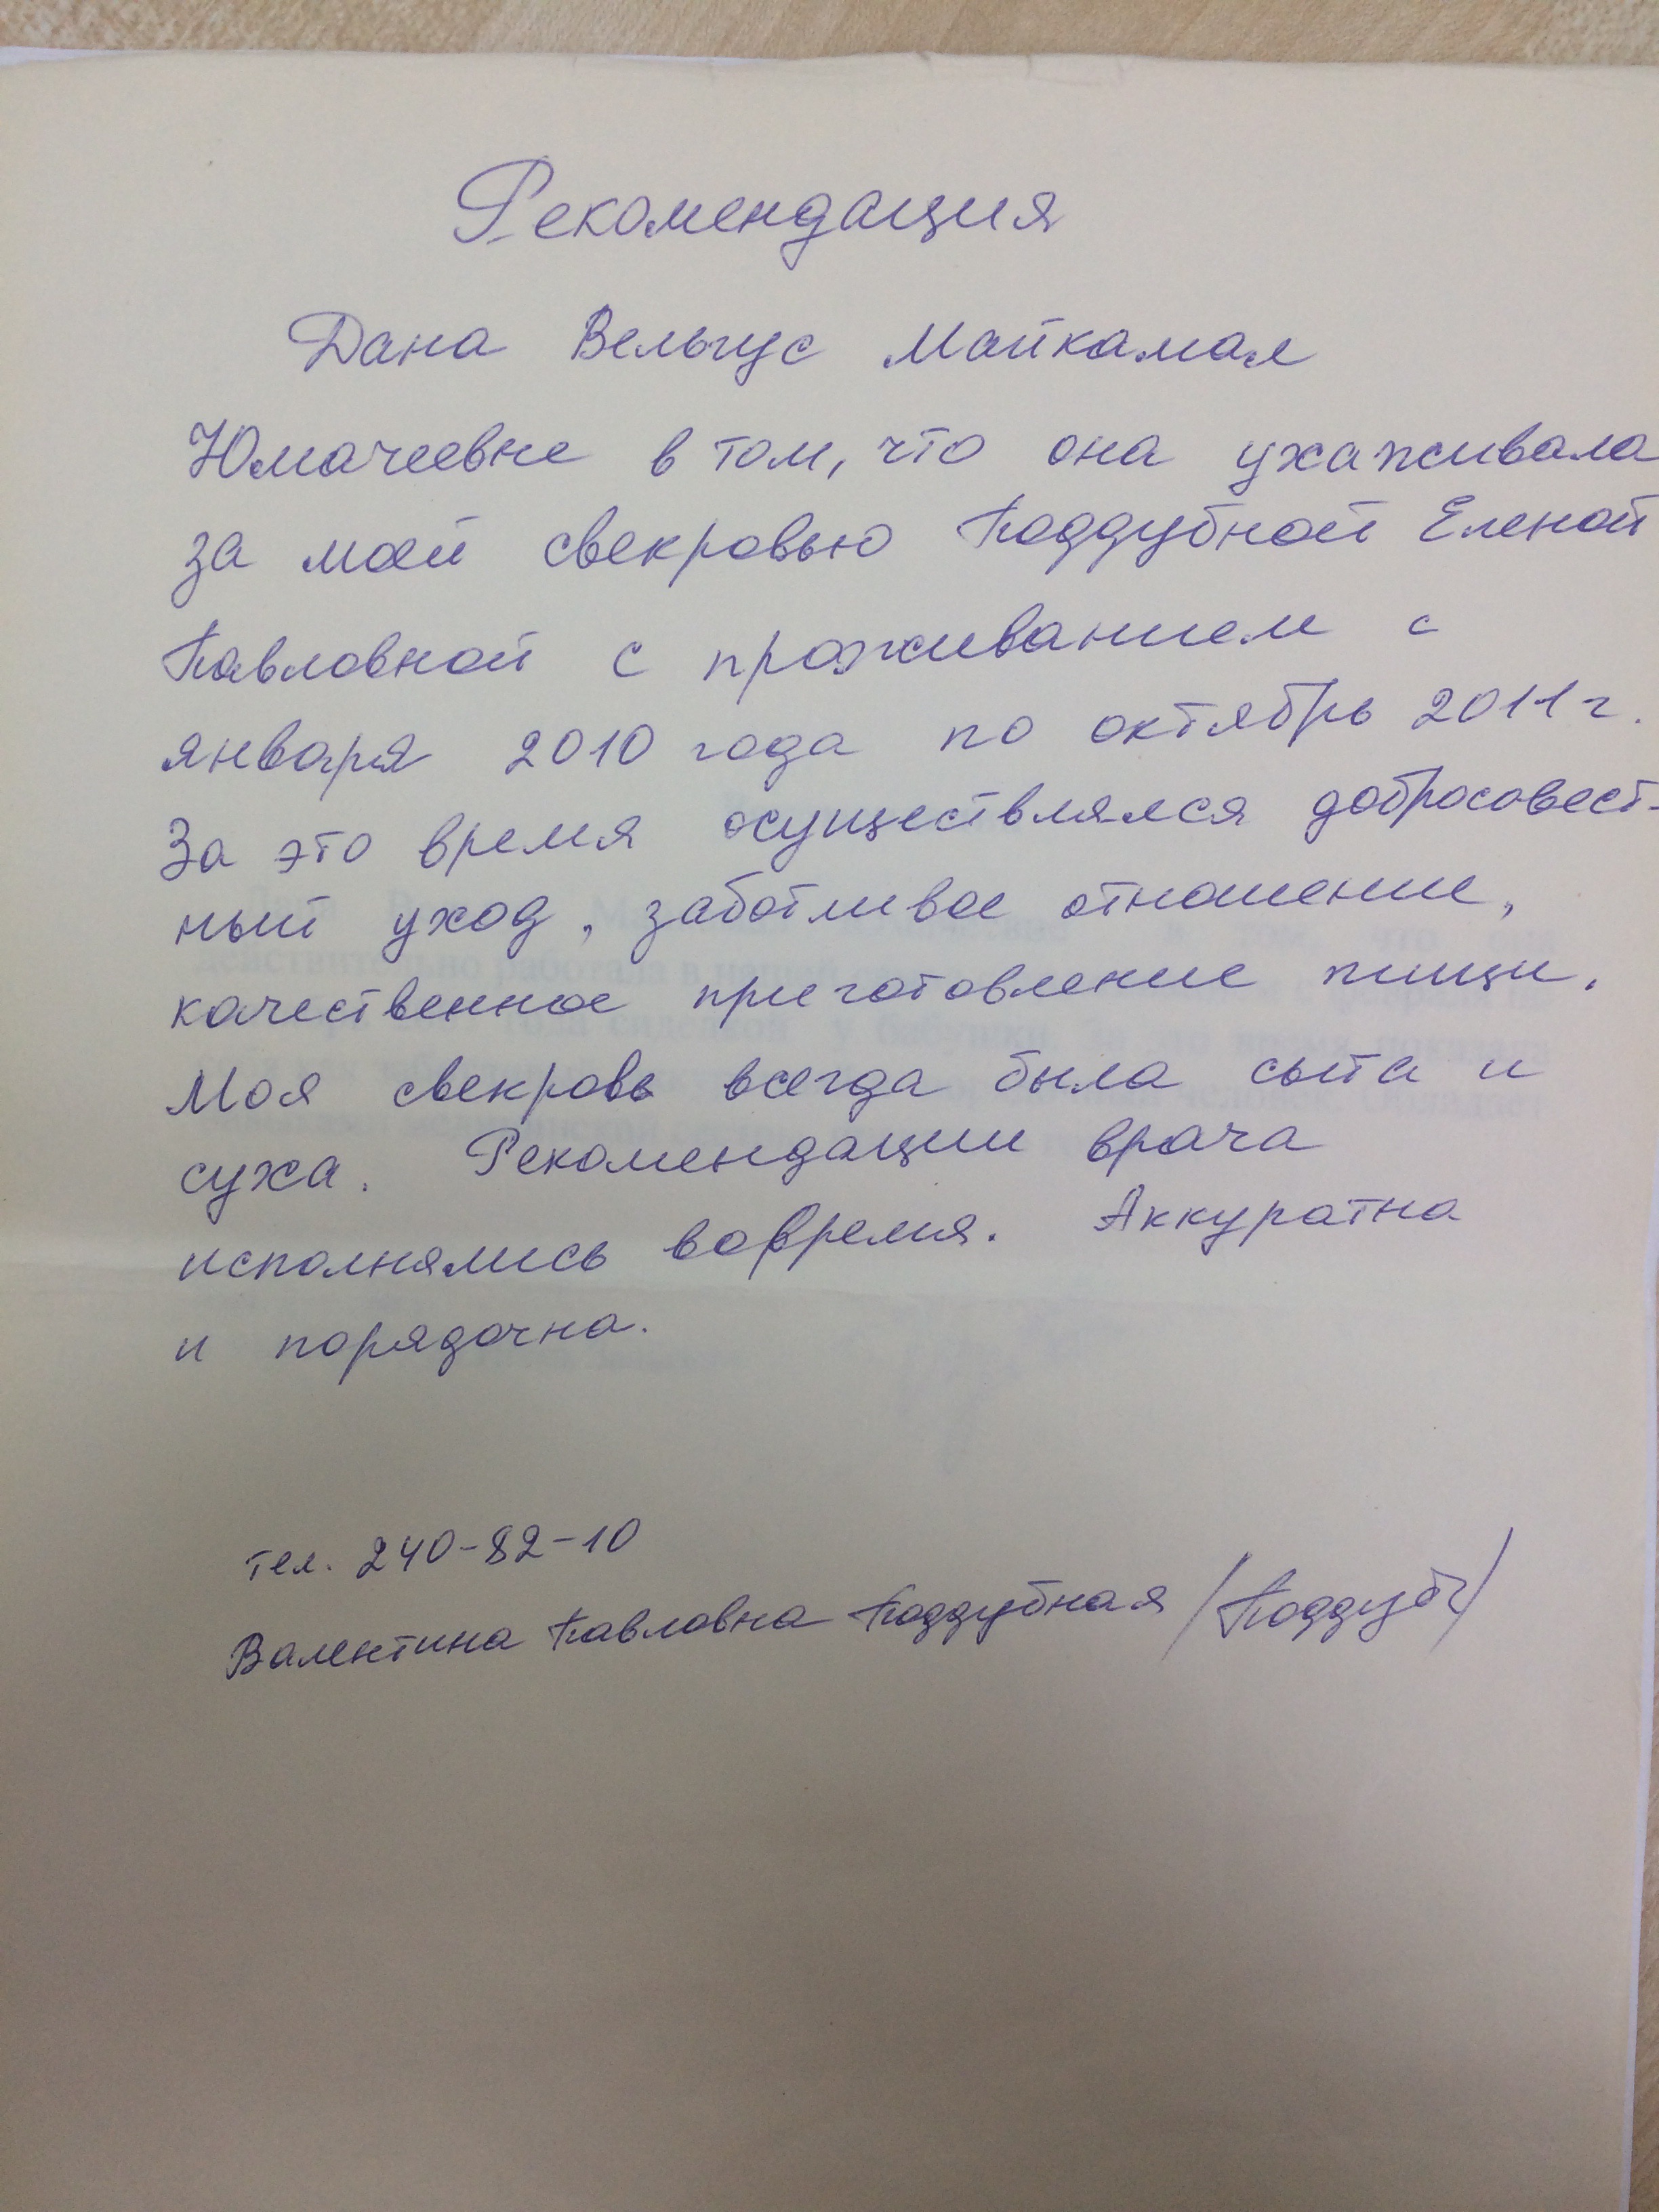 Рекомендация
Дана Вельгус Майкамал
Юмачеевне в том, что она ухаживала
за моей свекровью Поддубной Еленой
Павловной с проживанием с
января 2010 года по октябрь 2011 г.
За это время осуществлялся добросовест-
ный уход, заботливое отношение,
качественное приготовление пищи.
Моя свекровь всегда была сыта и
суха. Рекомендации врача
исполнялись вовремя. Аккуратна
и порядочна.
тел. 240-82-10
Валентина Павловна Поддубная /Поддуб/